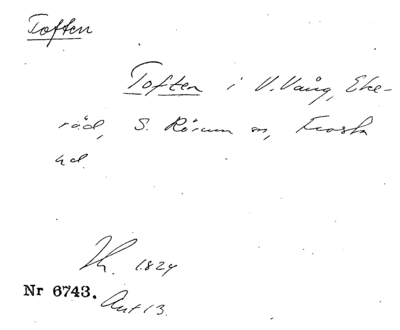 Toften
Toften i V. Vång, Eke-
röd, S. Rörum sn, Frosta
hd.
1824
Nr 6743.
Ant 13.